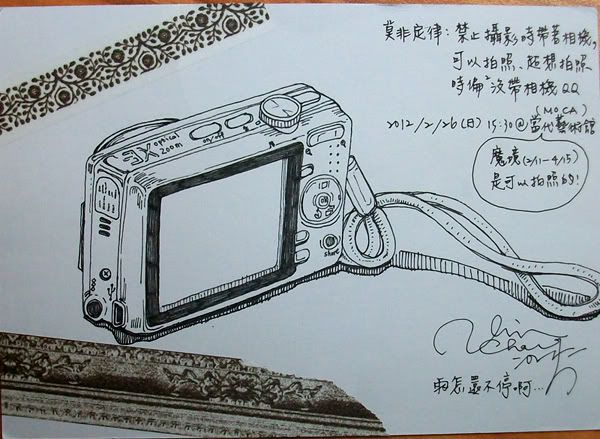 莫非定律:禁止攝影時帶著相機,
可以拍照、超想拍照
時偏〃沒帶相機QQ
(MOCA)
2012/2/26(日) 15:30@當代藝術館
魔境(2/11-4/15)
是可以拍照的!
3X optical
zoom
on/off
share
雨怎還不停啊...